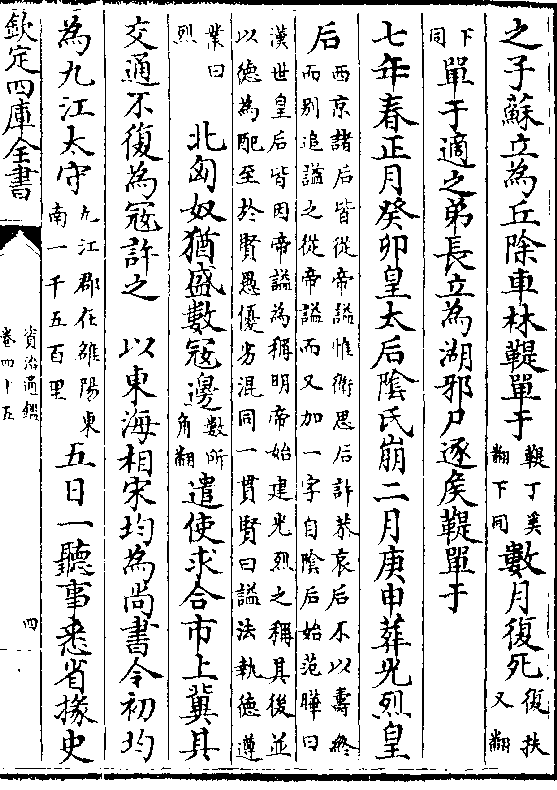 之子蘇立為丘除車林鞮單于鞮丁奚翻下同數月復死復扶又翻
下同單于適之弟長立為湖邪尸逐矦鞮單于
七年春正月癸卯皇太后隂氏崩二月庚申葬光烈皇
后西京諸后皆從帝諡惟衛思后許恭哀后不以壽終而别追諡之從帝諡而又加一字自隂后始范曄曰
漢世皇后皆因帝諡為稱明帝始建光烈之稱其後並以德為配至於賢愚優劣混同一貫賢曰諡法執德遵
業曰烈北匈奴猶盛數冦邊數所角翻遣使求合市上冀其
交通不復為冦許之　以東海相宋均為尚書令初均
為九江太守九江郡在雒陽東南一千五百里五日一聽事悉省掾史
欽定四庫全書
資治通鑑
卷四十五
四